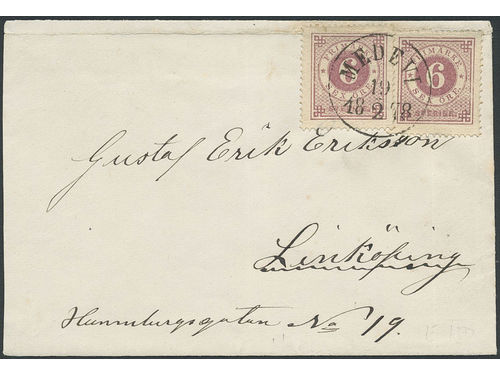 FRIMARKE FRIMARKE
6 6
SEX ÖRE. SEX ÖRE.
SVERIGE.
MEDEVI
19
18 2 78
Gustaf Erik Eriksson
Linköping
Hunnebergsgatan No 19.